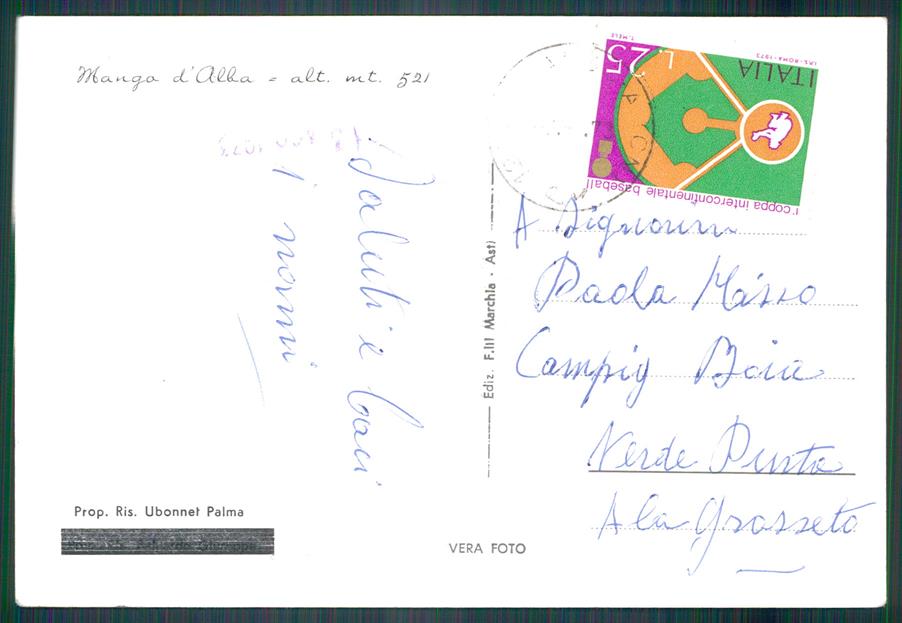 Mango d'Alba - alt. mt. 521
Saluti e baci
i nonni
Prop. Ris. Ubonnet Palma
VERA FOTO
Ediz. F.lli Marchia - Asti
ITALIA
L. 25
I.P.S.-ROMA-1973
T. MELE
1ª coppa intercontinentale baseball
A Signorina
Paola Masso
Campig Baia
Verde Punta
Ala Grosseto